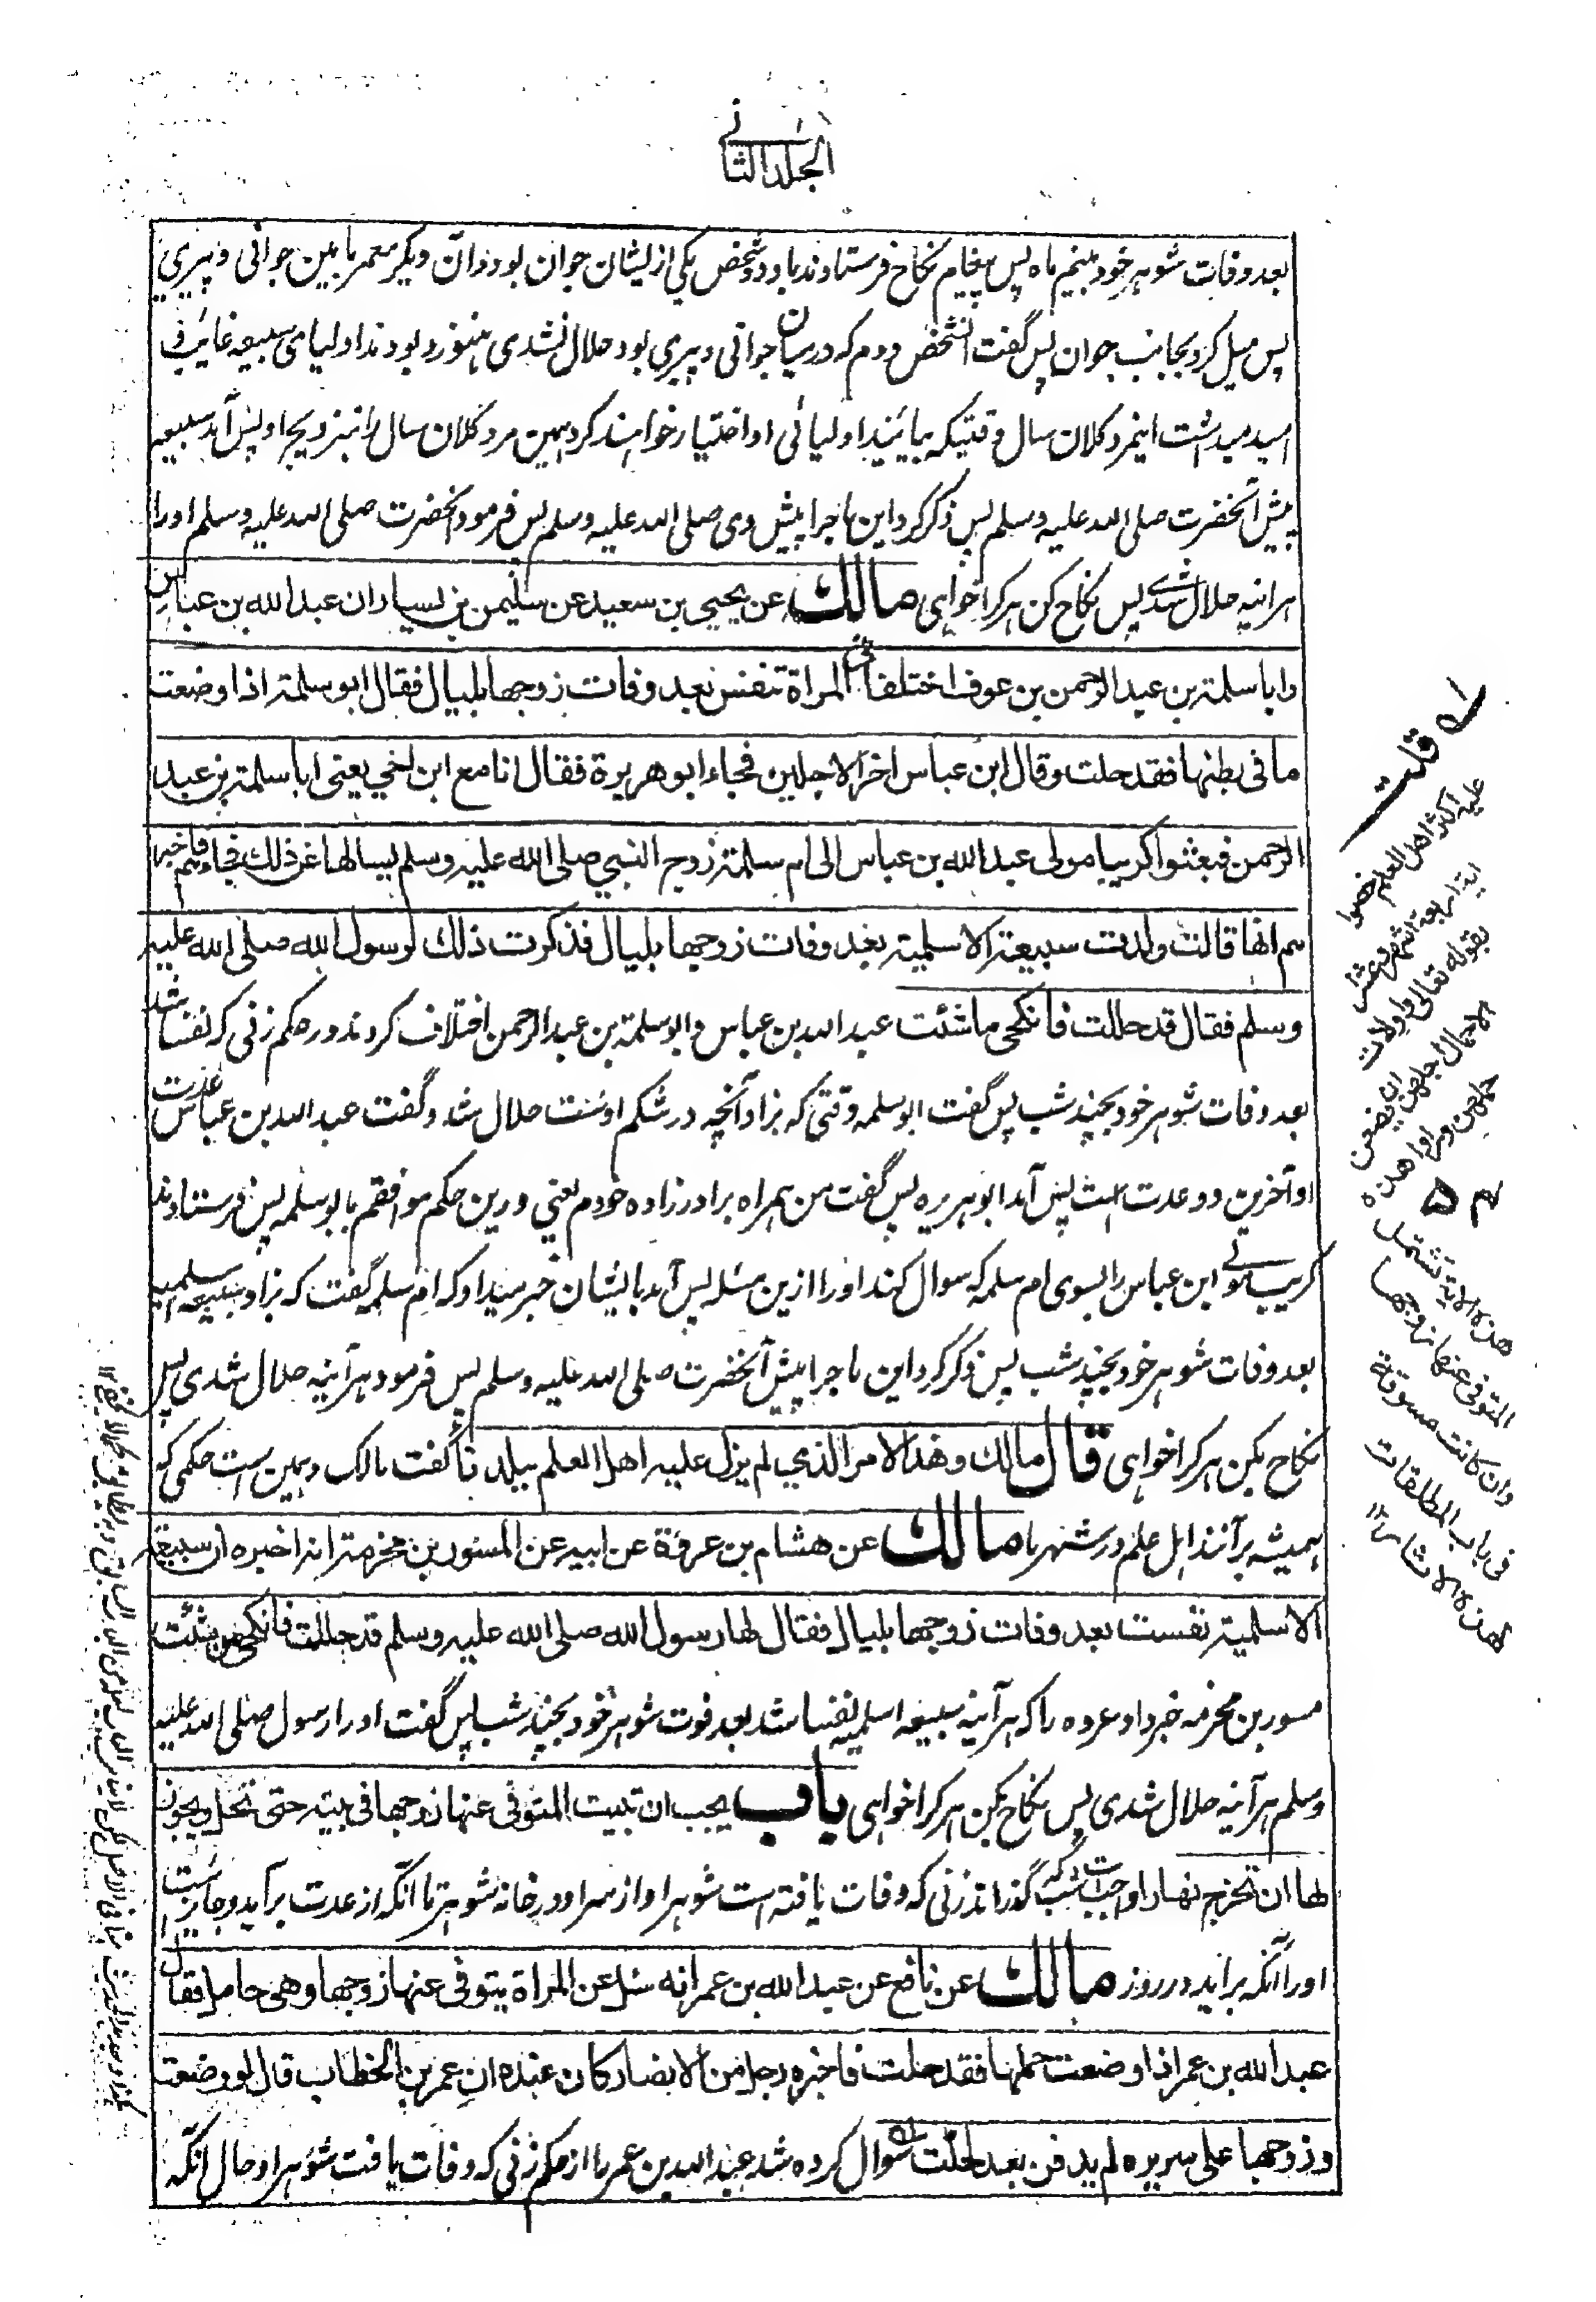 الجلد الثاني
بعد وفات شوهر خود بنیم ماه پس پیغام نکاح فرستادند باو دو شخص یکی ازیشان جوان بود و آن دیگر معمر ما بین جوانی و پیری
پس میل کرد بجانب جوان پس گفت آنشخص دوم که درمیان جوانی و پیری بود حلال نشدی هنوز و بودند اولیای سبیعه غایب و
امید میداشت اینمرد کلان سال وقتیکه بیایند اولیائی او اختیار خواهند کرد همین مرد کلان سال را بتزویج او پس آمد سبیعه
پیش آنحضرت صلی الله علیه وسلم پس ذکر کرد این ماجرا پیش وی صلی الله علیه وسلم پس فرمود آنحضرت صلی الله علیه وسلم او را
هرآئینه حلال شدی پس نکاح کن هر کرا خواهی مالك عن يحيى بن سعيد عن سليمن بن يسار ان عبد الله بن عباس
وابا سلمة بن عبد الرحمن بن عوف اختلفا في المراة تنفس بعد وفات زوجها بليال فقال ابو سلمة اذا وضعت
ما في بطنها فقد حلت وقال ابن عباس اخر الاجلين فجاء ابو هريرة فقال انا مع ابن اخي يعني ابا سلمة بن عبد
الرحمن فبعثوا كريبا مولى عبد الله بن عباس الى ام سلمة زوج النبي صلى الله عليه وسلم يسالها عن ذلك فجاءهم فاخبر
هم انها قالت ولدت سبيعة الاسلمية بعد وفات زوجها بليال فذكرت ذلك لرسول الله صلى الله عليه
وسلم فقال قد حللت فانكحي ما شئت عبد الله بن عباس و ابو سلمة بن عبد الرحمن اختلاف کردند در حکم زنی که نفسا شد
بعد وفات شوهر خود بچند شب پس گفت ابو سلمه وقتی که بزاد آنچه در شکم اوست حلال شد و گفت عبد الله بن عباس عدت
او آخرین دو عدت است پس آمد ابو هریره پس گفت من همراه برادر زاده خودم یعنی درین حکم موافقم با ابو سلمه پس فرستادند
کریب مولی ابن عباس را بسوی ام سلمه که سوال کند او را ازین مسئله پس آمد بایشان خبر میداد که ام سلمه گفت که بزاد سبیعه اسلمیه
بعد وفات شوهر خود بچند شب پس ذکر کرد این ماجرا پیش آنحضرت صلی الله علیه وسلم پس فرمود هرآئینه حلال شدی پس
نکاح بکن هر کرا خواهی قال مالك وهذا الامر الذي لم يزل عليه اهل العلم ببلدنا گفت مالک و همین است حکمی که
همیشه بر آنند اهل علم در شهر ما مالك عن هشام بن عرفة عن ابيه عن المسور بن مخرمة انه اخبره ان سبيعة
الاسلمية نفست بعد وفات زوجها بليال فقال لها رسول الله صلى الله عليه وسلم قد حللت فانكحي من شئت
مسور بن مخرمه خبر داد عروه را که هرآئینه سبیعه اسلمیه نفسا شد بعد فوت شوهر خود بچند شب پس گفت او را رسول صلی الله علیه
وسلم هرآئینه حلال شدی پس نکاح بکن هر کرا خواهی باب يجب ان تبيت المتوفى عنها زوجها في بيته حتى تحل ويجوز
لها ان تخرج نهارا واجب است که شب گذراند زنی که وفات یافته است شوهر او از سر او در خانه شوهر تا آنکه از عدت برآید و جائز است
او را آنکه برآید در روز مالك عن نافع عن عبد الله بن عمر انه سئل عن المراة يتوفى عنها زوجها وهي حامل فقال
عبد الله بن عمر اذا وضعت حملها فقد حلت فاخبره رجل من الانصار كان عنده ان عمر بن الخطاب قال لو وضعت
وزوجها على سريره لم يدفن بعد لحلت سوال کرده شد عبد الله بن عمر را از حکم زنی که وفات یافت شوهر او حال آنکه
قلت
عليه اكثر اهل العلم خصوا
اية اربعة اشهر وعشرا
بقوله تعالى واولات
الاحمال اجلهن ان يضعن
حملهن وراوا هذه
هذه الاية تشتمل
المتوفى عنها زوجها
وان كانت مسوقة
في باب المطلقات